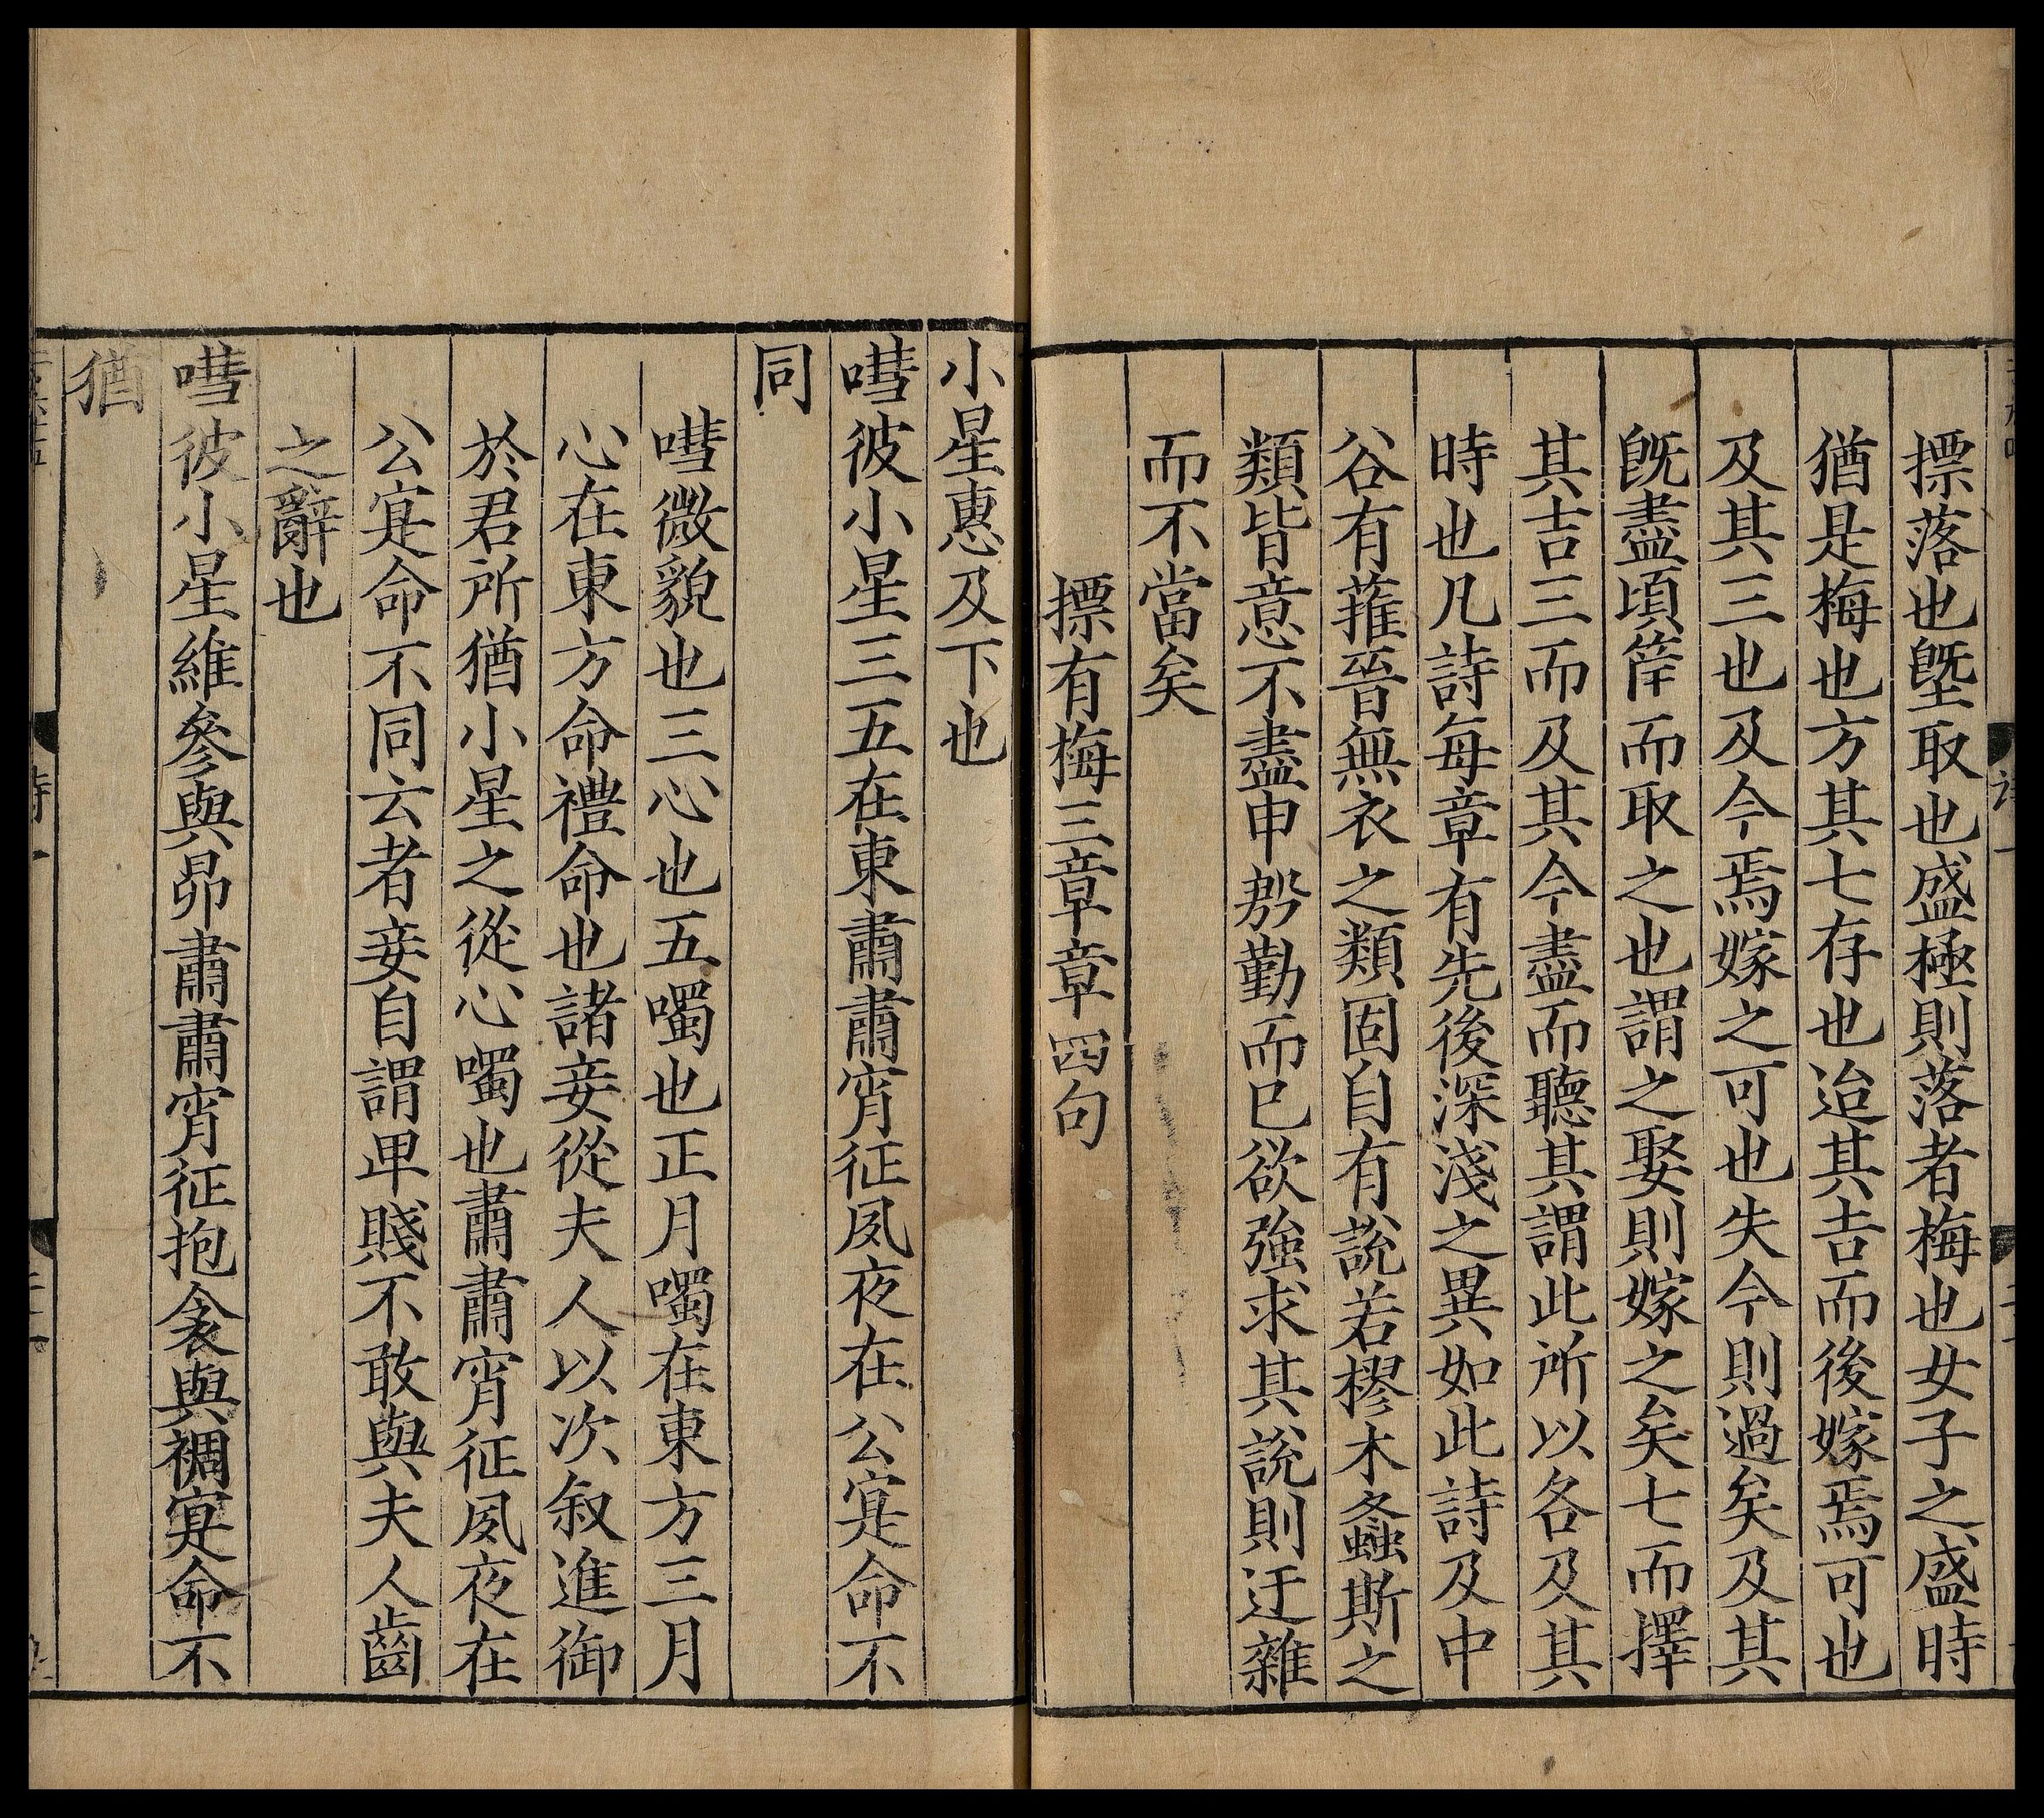 摽落也塈取也盛極則落者梅也女子之盛時
猶是梅也方其七存也迨其吉而後嫁焉可也
及其三也及今焉嫁之可也失今則過矣及其
旣盡頃筐而取之也謂之娶則嫁之矣七而擇
其吉三而及其今盡而聽其謂此所以各及其
時也凡詩每章有先後深淺之異如此詩及中
谷有蓷晉無衣之類固自有說若樛木螽斯之
類皆意不盡申慇勤而已欲強求其說則迂雜
而不當矣
摽有梅三章章四句
小星惠及下也
嘒彼小星三五在東肅肅宵征夙夜在公寔命不
同
嘒微貌也三心也五噣也正月噣在東方三月
心在東方命禮命也諸妾從夫人以次叙進御
於君所猶小星之從心噣也肅肅宵征夙夜在
公寔命不同云者妾自謂卑賤不敢與夫人齒
之辭也
嘒彼小星維參與昴肅肅宵征抱衾與裯寔命不
猶